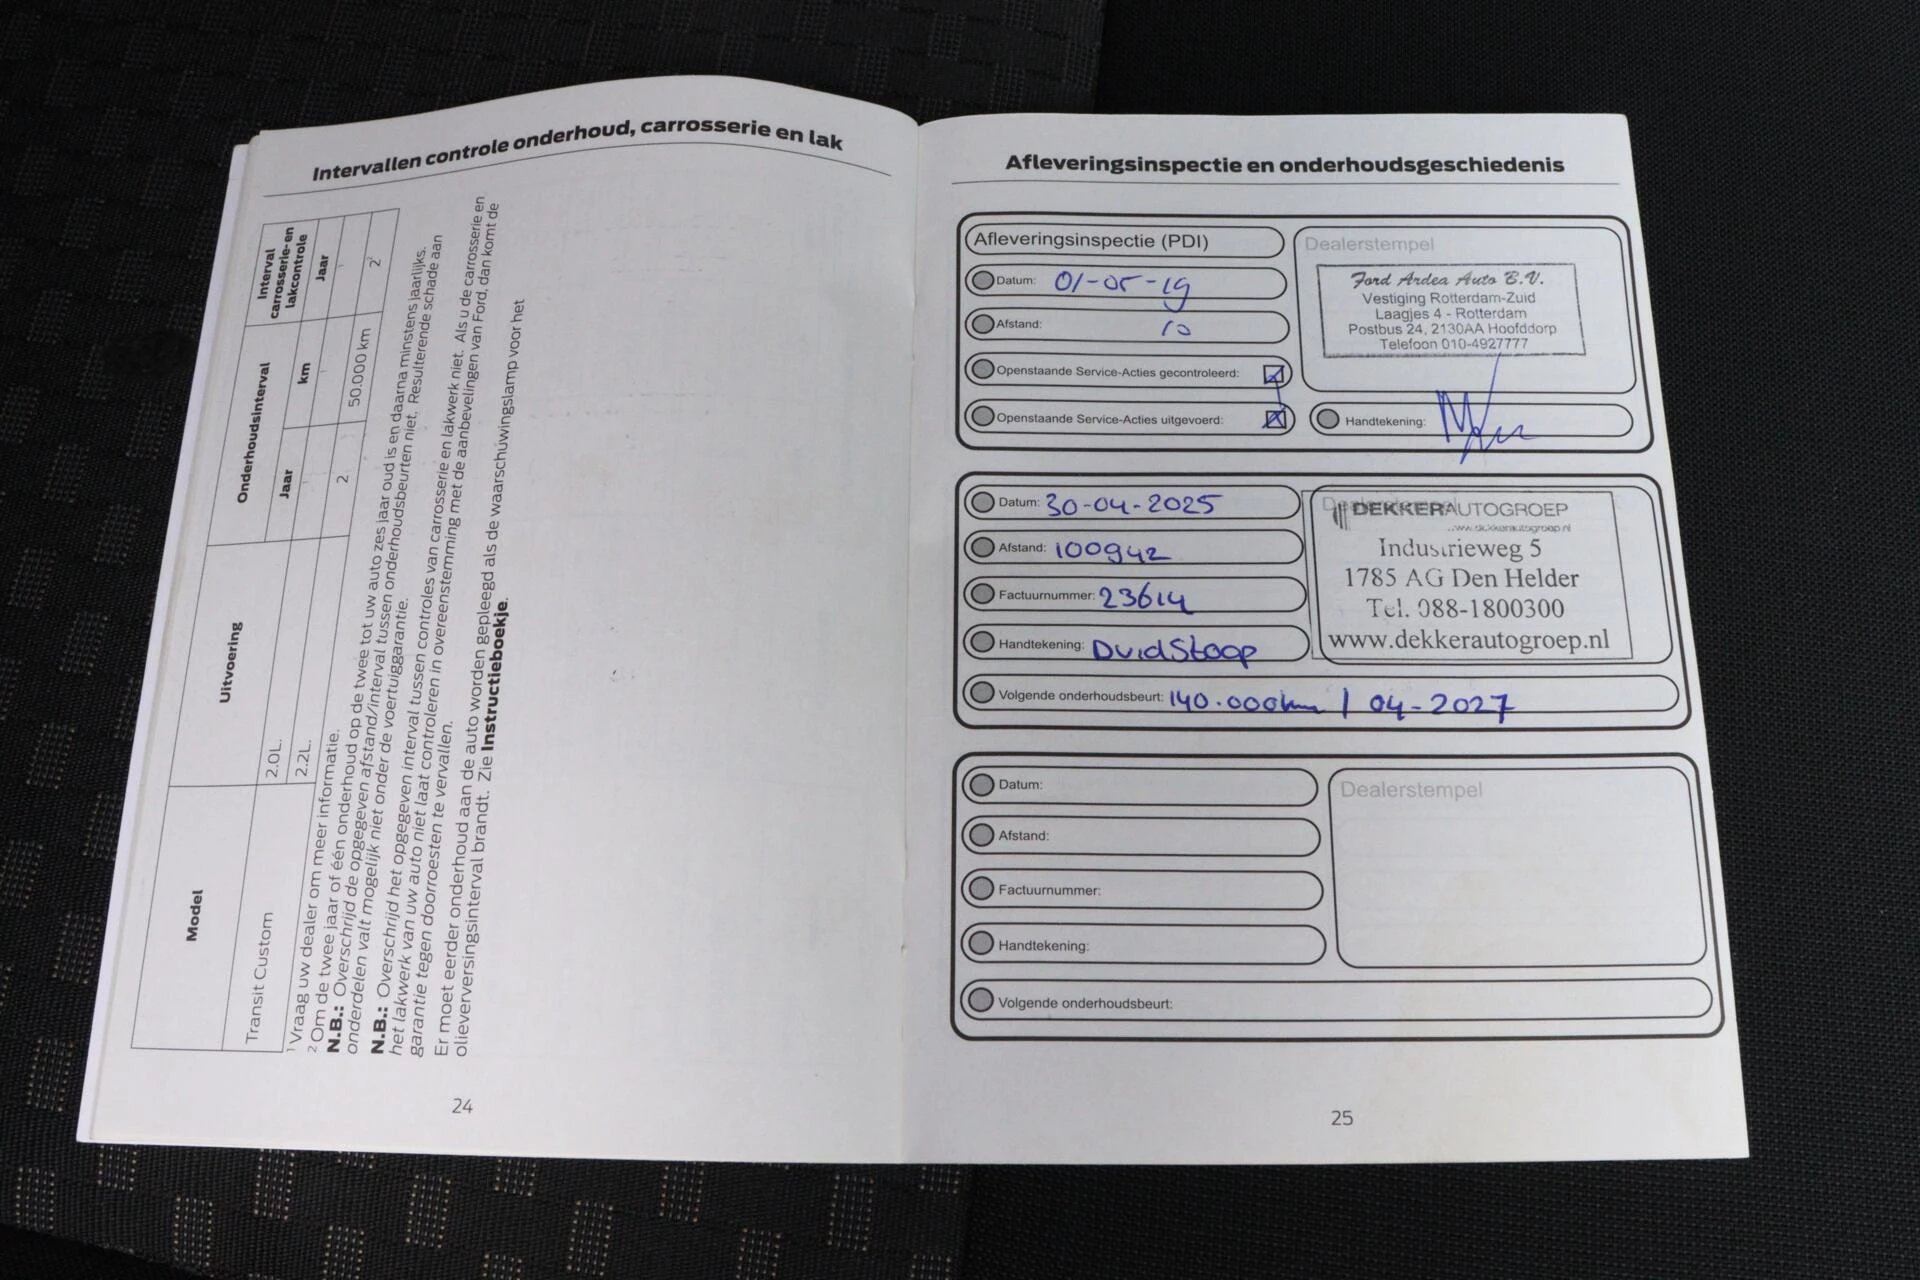 Intervallen controle onderhoud, carrosserie en lak
Model
Uitvoering
Onderhoudsinterval
Interval carrosserie- en lakcontrole
Jaar
km
Jaar
Transit Custom
2.0L.
2.2L.
2
50.000 km
2²
¹ Vraag uw dealer om meer informatie.
² Om de twee jaar of één onderhoud op de twee tot uw auto zes jaar oud is en daarna minstens jaarlijks.
N.B.: Overschrijd de opgegeven afstand/interval tussen onderhoudsbeurten niet. Resulterende schade aan
onderdelen valt mogelijk niet onder de voertuiggarantie.
N.B.: Overschrijd het opgegeven interval tussen controles van carrosserie en lakwerk niet. Als u de carrosserie en
het lakwerk van uw auto niet laat controleren in overeenstemming met de aanbevelingen van Ford, dan komt de
garantie tegen doorroesten te vervallen.
Er moet eerder onderhoud aan de auto worden gepleegd als de waarschuwingslamp voor het
olieverversingsinterval brandt. Zie Instructieboekje.
24
Afleveringsinspectie en onderhoudsgeschiedenis
Afleveringsinspectie (PDI)
Datum: 01-05-19
Afstand: 10
Openstaande Service-Acties gecontroleerd:
Openstaande Service-Acties uitgevoerd:
Dealerstempel
Ford Ardea Auto B.V.
Vestiging Rotterdam-Zuid
Laagjes 4 - Rotterdam
Postbus 24, 2130AA Hoofddorp
Telefoon 010-4927777
Handtekening:
Datum: 30-04-2025
Afstand: 100942
Factuurnummer: 23614
Handtekening: DvidStoop
Volgende onderhoudsbeurt: 140.000km / 04-2027
Dealerstempel
DEKKERAUTOGROEP
www.dekkerautogroep.nl
Industrieweg 5
1785 AG Den Helder
Tel. 088-1800300
www.dekkerautogroep.nl
Datum:
Afstand:
Factuurnummer:
Handtekening:
Volgende onderhoudsbeurt:
Dealerstempel
25